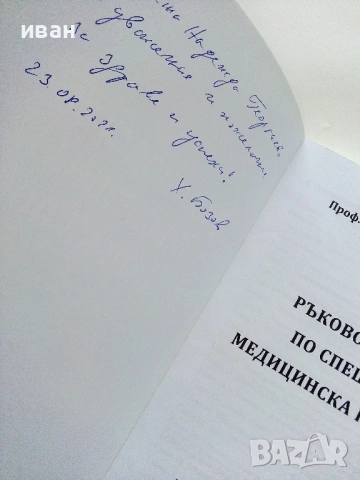 иван
Надежда Георгиева
с уважение и пожелания
за здраве и успехи!
23.08.2021г.
Х. Бозов
Проф.
РЪКОВО
ПО СПЕЦ
МЕДИЦИНСКА
BAZAR
bg